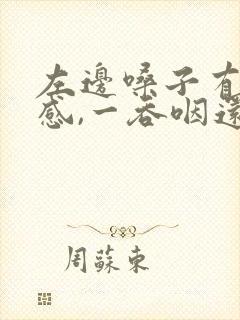 左邊嗓子有
感,一吞咽還
周蘇東